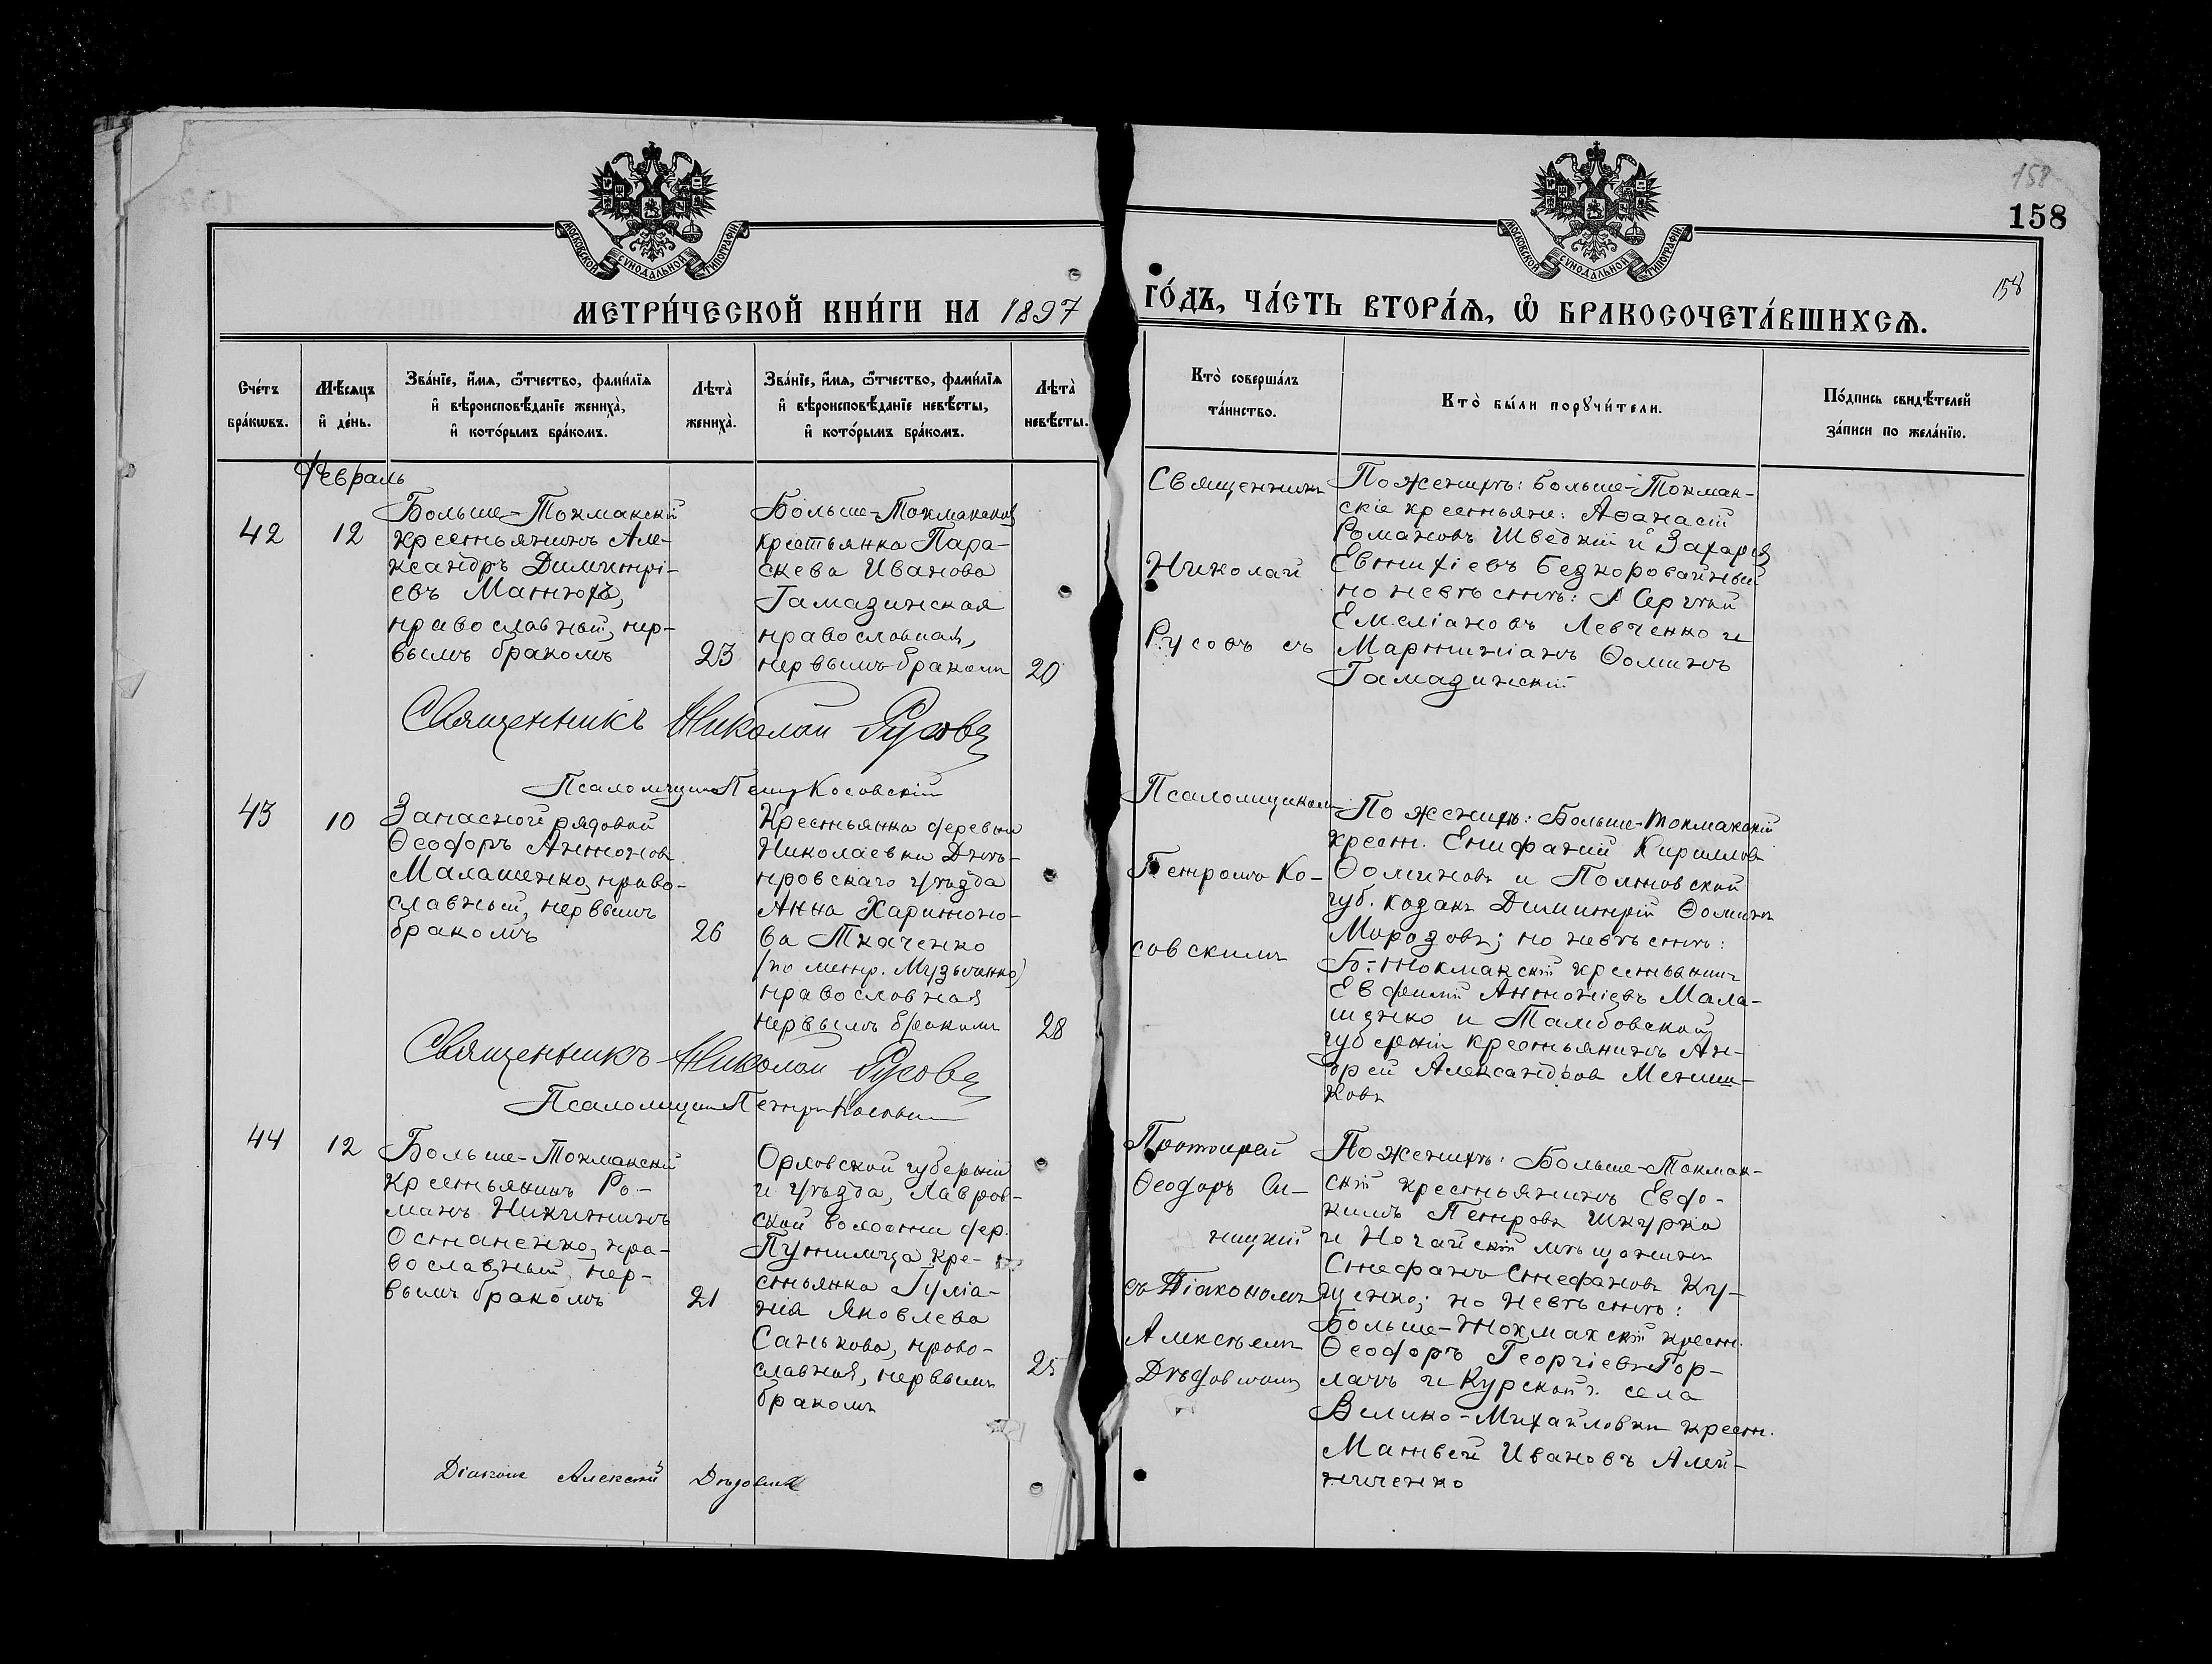 158
158
МОСКОВСКОЙ СУНОДАЛЬНОЙ ТИПОГРАФІИ
МОСКОВСКОЙ СУНОДАЛЬНОЙ ТИПОГРАФІИ
158
МЕТРИ́ЧЕСКОЙ КНИ́ГИ НА 1897 ГО́ДЪ, ЧА́СТЬ ВТОРА́Ѧ, Ѡ҆ БРАКОСОЧЕТА́ВШИХСѦ.
Сче́тъ
бра́кѡвъ.
Мѣ́сѧцъ
и҆ де́нь.
Зва́нїе, и҆́мѧ, ѻ҆́тчество, фами́лїѧ
и҆ вѣроисповѣ́данїе жениха̀,
и҆ кото́рымъ бра́комъ.
Лѣта̀
жениха̀.
Зва́нїе, и҆́мѧ, ѻ҆́тчество, фами́лїѧ
и҆ вѣроисповѣ́данїе невѣ́сты,
и҆ кото́рымъ бра́комъ.
Лѣта̀
невѣ́сты.
Кто̀ соверша́лъ
та́инство.
Кто̀ бы́ли порꙋчи́тели.
По́дпись свидѣ́телей
за́писи по жела́нїю.
Февраль
42
12
Больше-Токмакскій
крестьянинъ Але-
ксандръ Димитрі-
евъ Матюха,
православный, пер-
вымъ бракомъ
23
Больше-Токмакская
крестьянка Пара-
скева Иванова
Гамазинская
православная,
первымъ бракомъ
20
Священникъ
Николай
Русовъ съ
По женихѣ: Больше-Токмак-
скіе крестьяне: Аѳанасій
Романовъ Шведкій и Захарія
Евтихіевъ Безкоровайный
по невѣстѣ: Сергѣй
Емеліановъ Левченко и
Мартиніанъ Ѳоминъ
Гамазинскій
Священникъ Николай Русовъ
Псаломщикъ Петръ Косовскій
43
10
Запасной рядовой
Ѳеодоръ Антоновъ
Малашенко, право-
славный, первымъ
бракомъ
26
Крестьянка деревни
Николаевки Днѣ-
провскаго уѣзда
Анна Харитоно-
ва Ткаченко
(по метр. Музыченко)
православная
первымъ бракомъ
28
Псаломщикомъ
Петромъ Ко-
совскимъ
По женихѣ: Больше-Токмакскій
крест. Епифаній Кирилловъ
Ѳоминовъ и Полтовской
губ. козакъ Димитрій Ѳоминъ
Морозовъ; по невѣстѣ:
Б.-Токмакскій крестьянинъ
Евфимій Антоніевъ Мала-
шенко и Тамбовской
губерніи крестьянинъ Ан-
дрей Александровъ Менши-
ковъ
Священникъ Николай Русовъ
Псаломщикъ Петръ Косовскій
44
12
Больше-Токмакскій
крестьянинъ Ро-
манъ Никитинъ
Остапенко, пра-
вославный, пер-
вымъ бракомъ
21
Орловской губерніи
и уѣзда, Лавров-
ской волости дер.
Путимца кре-
стьянка Іуліа-
нія Яковлева
Санькова, право-
славная, первымъ
бракомъ
25
Протоіерей
Ѳеодоръ Си-
ницкій
съ Діакономъ
Алексѣемъ
По женихѣ: Больше-Токмак-
скій крестьянинъ Евдо-
кимъ Петровъ Шкурка
и Ногайскій мѣщанинъ
Стефанъ Стефановъ Ку-
щенко; по невѣстѣ:
Больше-Токмакскій крест.
Ѳеодоръ Георгіевъ Гор-
лачъ и Курской г. села
Велико-Михайловки крест.
Матвей Ивановъ Алей-
ниченко
Діаконъ Алексій